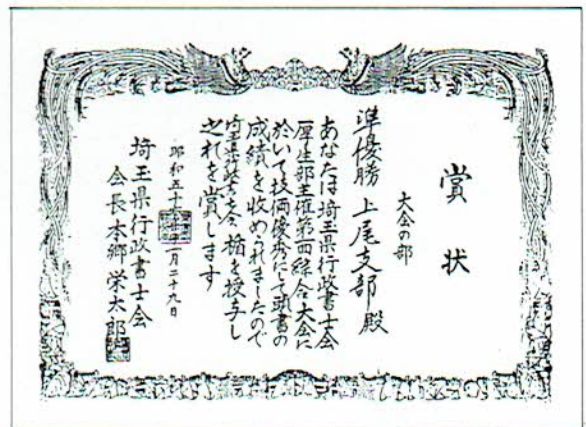 賞状
大会の部
準優勝 上尾支部殿
あなたは埼玉県行政書士会
厚生部主催第四回総合大会に
於いて技価優秀にして頭書の
成績を収められましたので
埼玉県行政書士会 楯を授与し
之れを賞します
昭和五十 年 一月二十九日
埼玉県行政書士会
会長本郷栄太郎